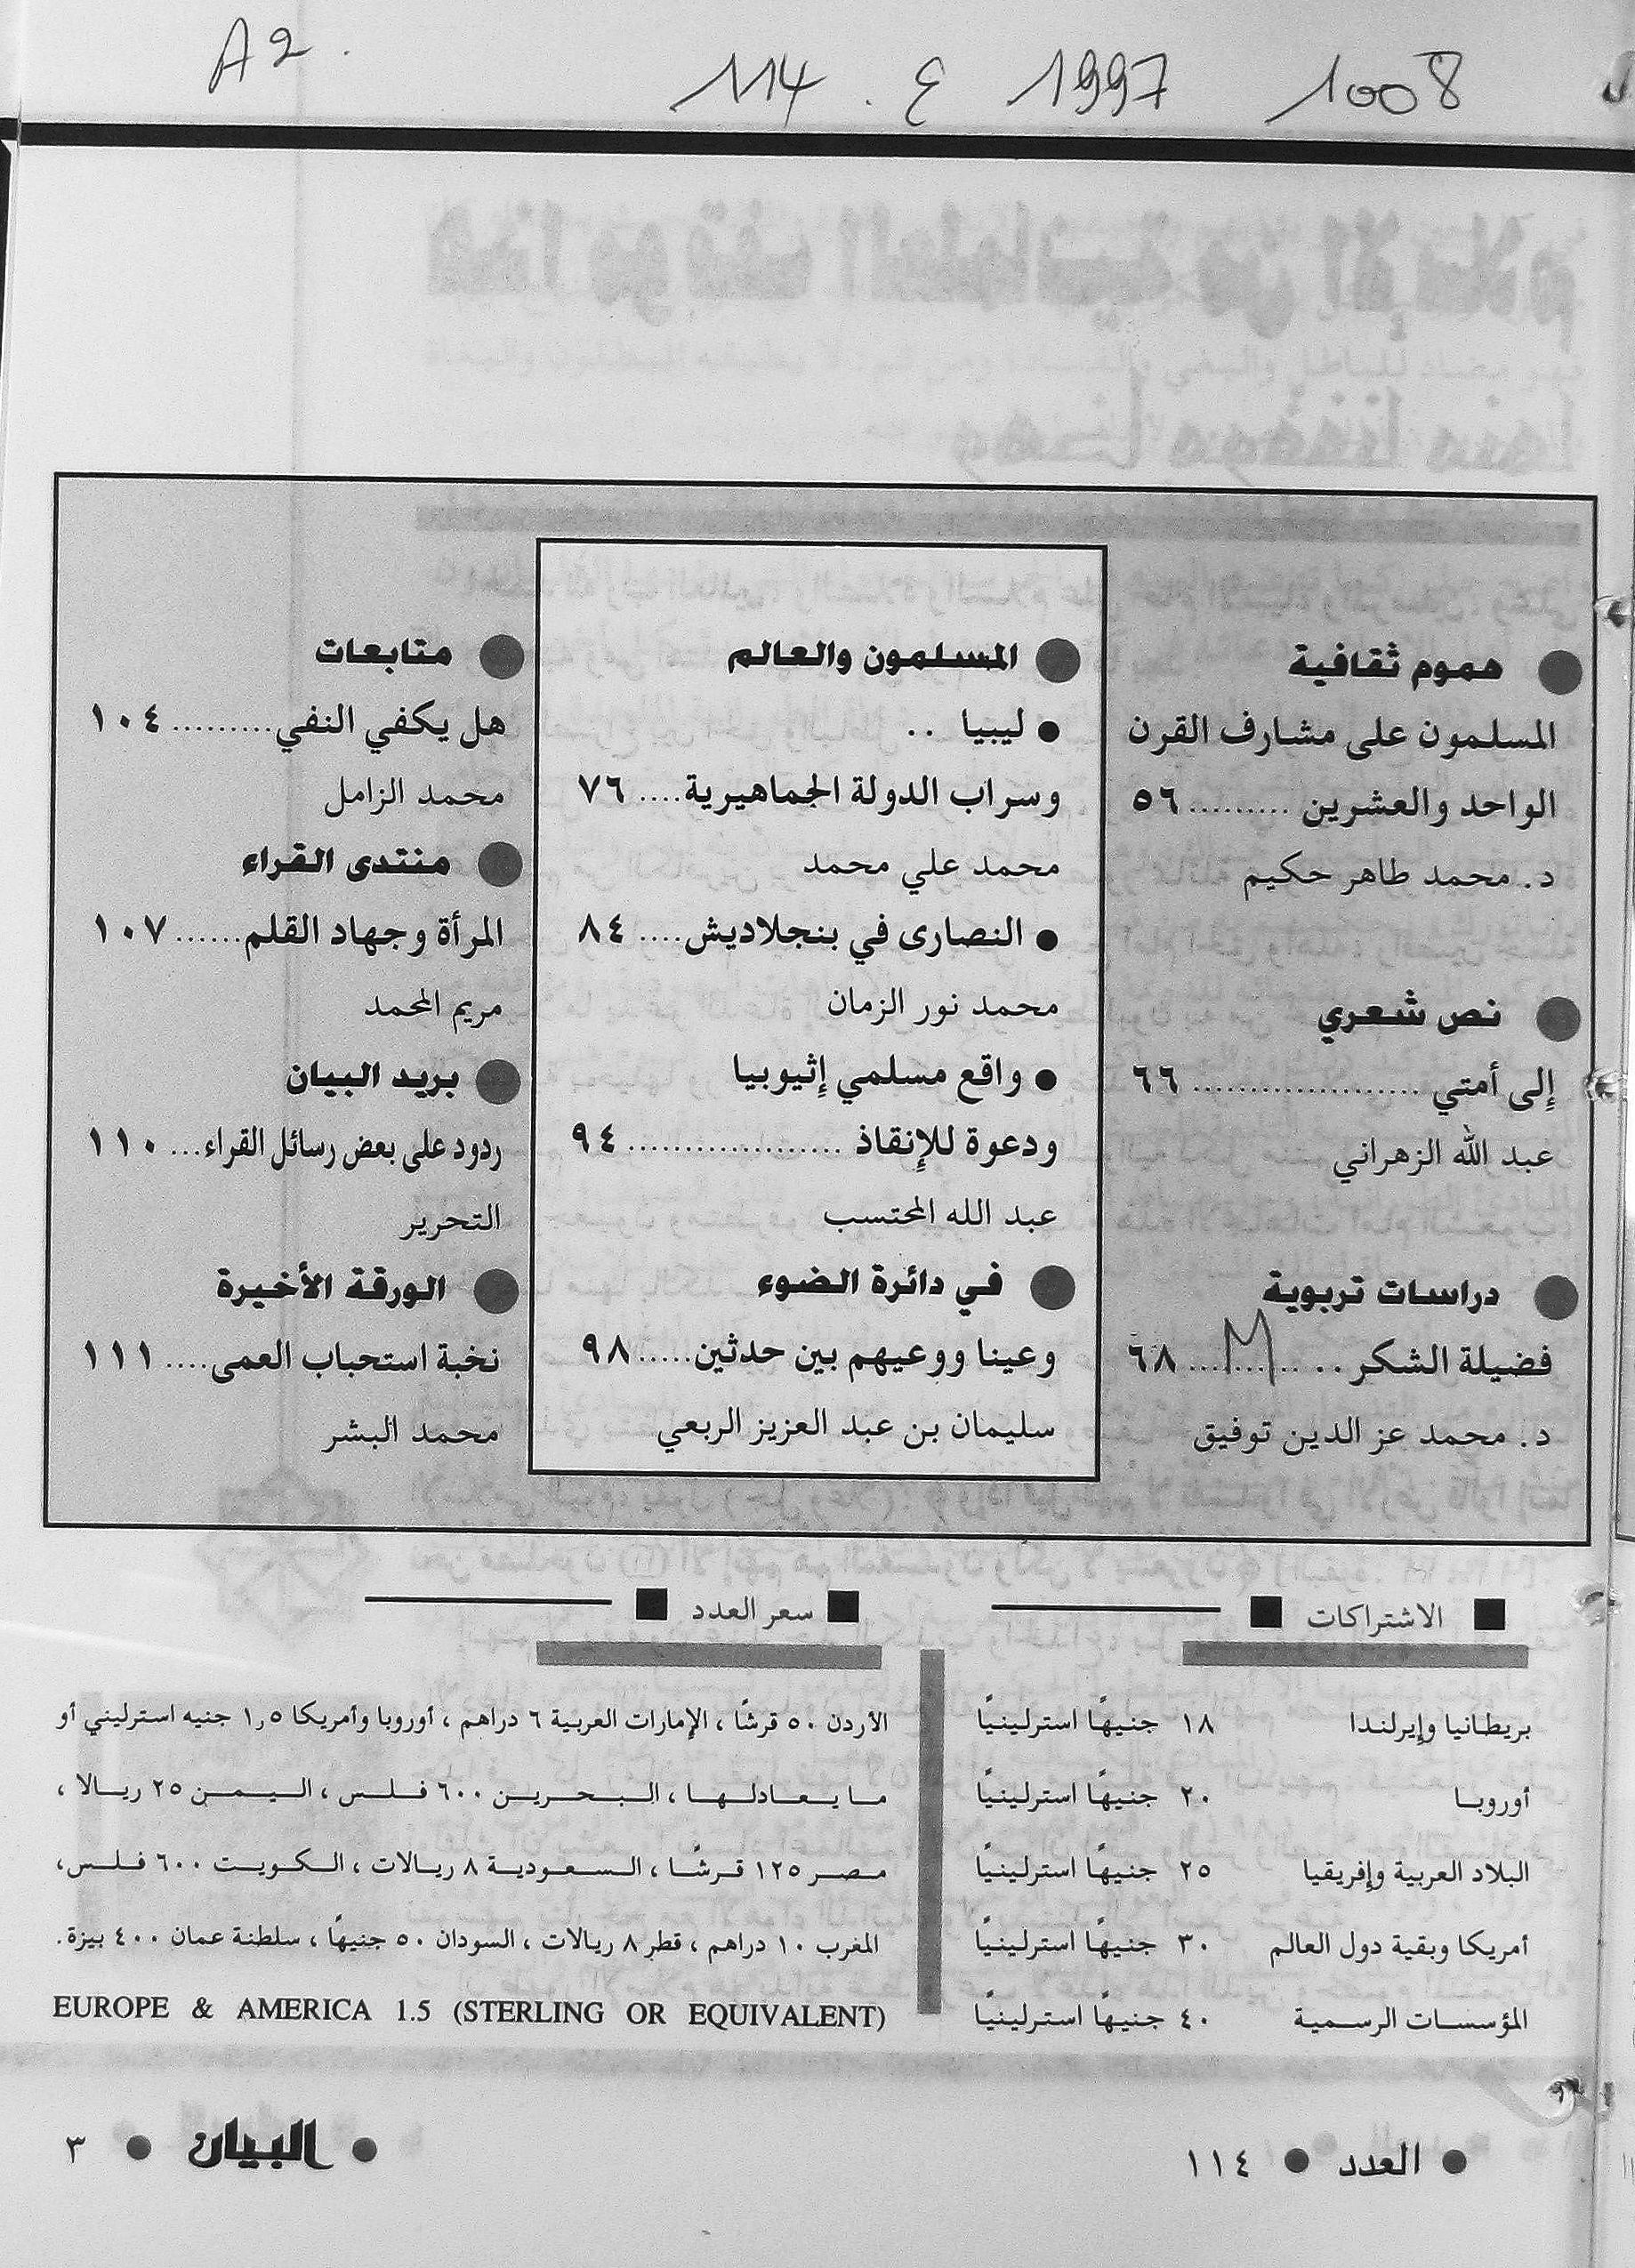 A2.
114 . ع 1997 1008
هموم ثقافية
المسلمون على مشارف القرن
الواحد والعشرين ......... ٥٦
د. محمد طاهر حكيم
نص شعري
إلى أمتي .................... ٦٦
عبد الله الزهراني
دراسات تربوية
فضيلة الشكر .. M ......... ٦٨
د. محمد عز الدين توفيق
المسلمون والعالم
● ليبيا ..
وسراب الدولة الجماهيرية .... ٧٦
محمد علي محمد
● النصارى في بنجلاديش .... ٨٤
محمد نور الزمان
● واقع مسلمي إثيوبيا
ودعوة للإنقاذ ................... ٩٤
عبد الله المحتسب
في دائرة الضوء
وعينا ووعيهم بين حدثين ..... ٩٨
سليمان بن عبد العزيز الربعي
متابعات
هل يكفي النفي ......... ١٠٤
محمد الزامل
منتدى القراء
المرأة وجهاد القلم ...... ١٠٧
مريم المحمد
بريد البيان
ردود على بعض رسائل القراء ... ١١٠
التحرير
الورقة الأخيرة
نخبة استحباب العمى .... ١١١
محمد البشر
الاشتراكات
بريطانيا وإيرلندا ١٨ جنيهًا استرلينيًا
أوروبا ٢٠ جنيهًا استرلينيًا
البلاد العربية وإفريقيا ٢٥ جنيهًا استرلينيًا
أمريكا وبقية دول العالم ٣٠ جنيهًا استرلينيًا
المؤسسات الرسمية ٤٠ جنيهًا استرلينيًا
سعر العدد
الأردن ٥٠ قرشًا ، الإمارات العربية ٦ دراهم ، أوروبا وأمريكا ١,٥ جنيه استرليني أو
ما يعادلها ، البحرين ٦٠٠ فلس ، اليمن ٢٥ ريالا ،
مصر ١٢٥ قرشًا ، السعودية ٨ ريالات ، الكويت ٦٠٠ فلس،
المغرب ١٠ دراهم ، قطر ٨ ريالات ، السودان ٥٠ جنيهًا ، سلطنة عمان ٤٠٠ بيزة.
EUROPE & AMERICA 1.5 (STERLING OR EQUIVALENT)
● العدد ● ١١٤
● البيان ● ٣